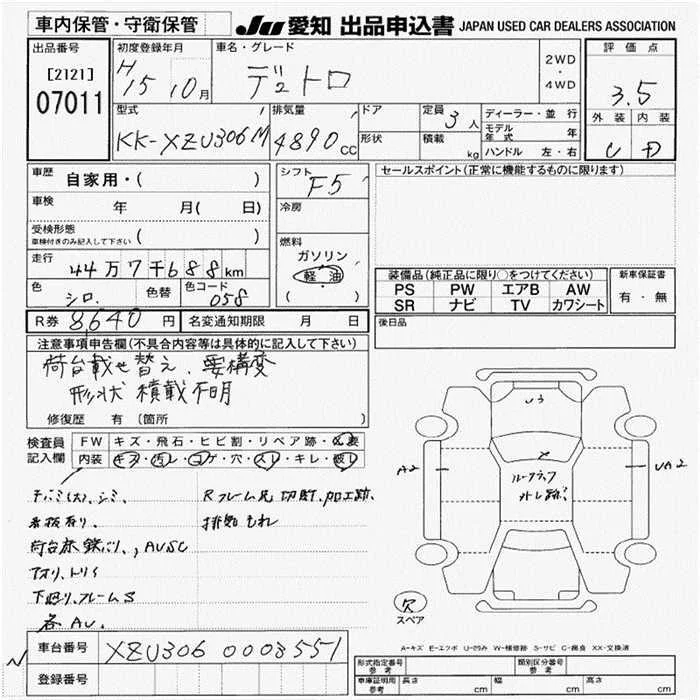 車内保管・守衛保管
JU 愛知 出品申込書 JAPAN USED CAR DEALERS ASSOCIATION
出品番号
[2121]
07011
初度登録年月
H15 10月
車名・グレード
デュトロ
2WD
・
4WD
評価点
3.5
外装 内装
C D
型式
KK-XZU306M
排気量
4890 CC
ドア
形状
定員 3人
積載 kg
ディーラー・並行
モデル年式 年
ハンドル 左・右
車歴 自家用・( )
車検 年 月( 日)
受検形態
車検付きのみ記入して下さい ( )
走行 44万7千688km
色 シロ. 色替 色コード 058
R券 8,640 円 名変通知期限 月 日
シフト F5
冷房
燃料
ガソリン
軽油
( )
セールスポイント(正常に機能するものに限ります)
装備品(純正品に限り○をつけてください) 新車保証書
PS PW エアB AW
SR ナビ TV カワシート
有・無
後日品
注意事項申告欄(不具合内容等は具体的に記入して下さい)
荷台載せ替え、要構変
形状 積載不明
修復歴 有 (箇所 )
検査員記入欄
FW キズ・飛石・ヒビ割・リペア跡・必要
内装 キズ・汚レ・コゲ・穴・スレ・キレ・破レ
看板有り、
荷台床鉄バリ、, AUSC
下廻り、フレームS
各AU.
Rフレーム尻切断、加工跡、
排気もれ
U3
A2
UA2
ルーフラック
外し跡
欠
スペア
A=キズ E=エクボ U=凹み W=補修跡 S=サビ C=腐食 XX=交換済
N
車台番号 XZU306 0003551
登録番号
形式指定番号 参考
類別区分番号 参考
車庫証明用 参考
長さ cm 幅 cm 高さ cm